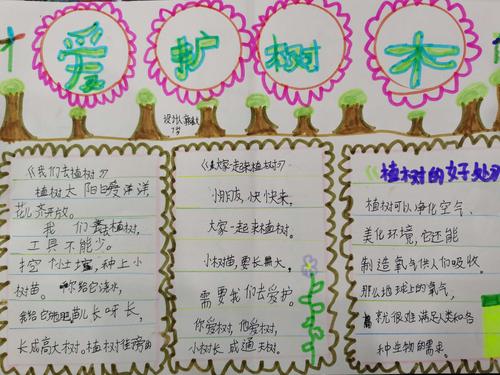 爱护树木
《我们去植树》
植树太阳日爱洋洋
花儿齐开放。
我们去植树,
工具不能少。
挖个小土堆,种上小
树苗。你给它浇水,
我给它施肥苗儿长呀长,
长成高大树。植树
《大家一起来植树》
小朋友,快快来,
大家一起来植树。
小树苗,要长大,
需要我们去爱护。
你爱树,他爱树,
小树长成通天树。
《植树的好处》
植树可以净化空气、
美化环境,它还能
制造氧气供人们吸收。
那么地球上的氧气,
就很难满足人类和各
种生物的需求。